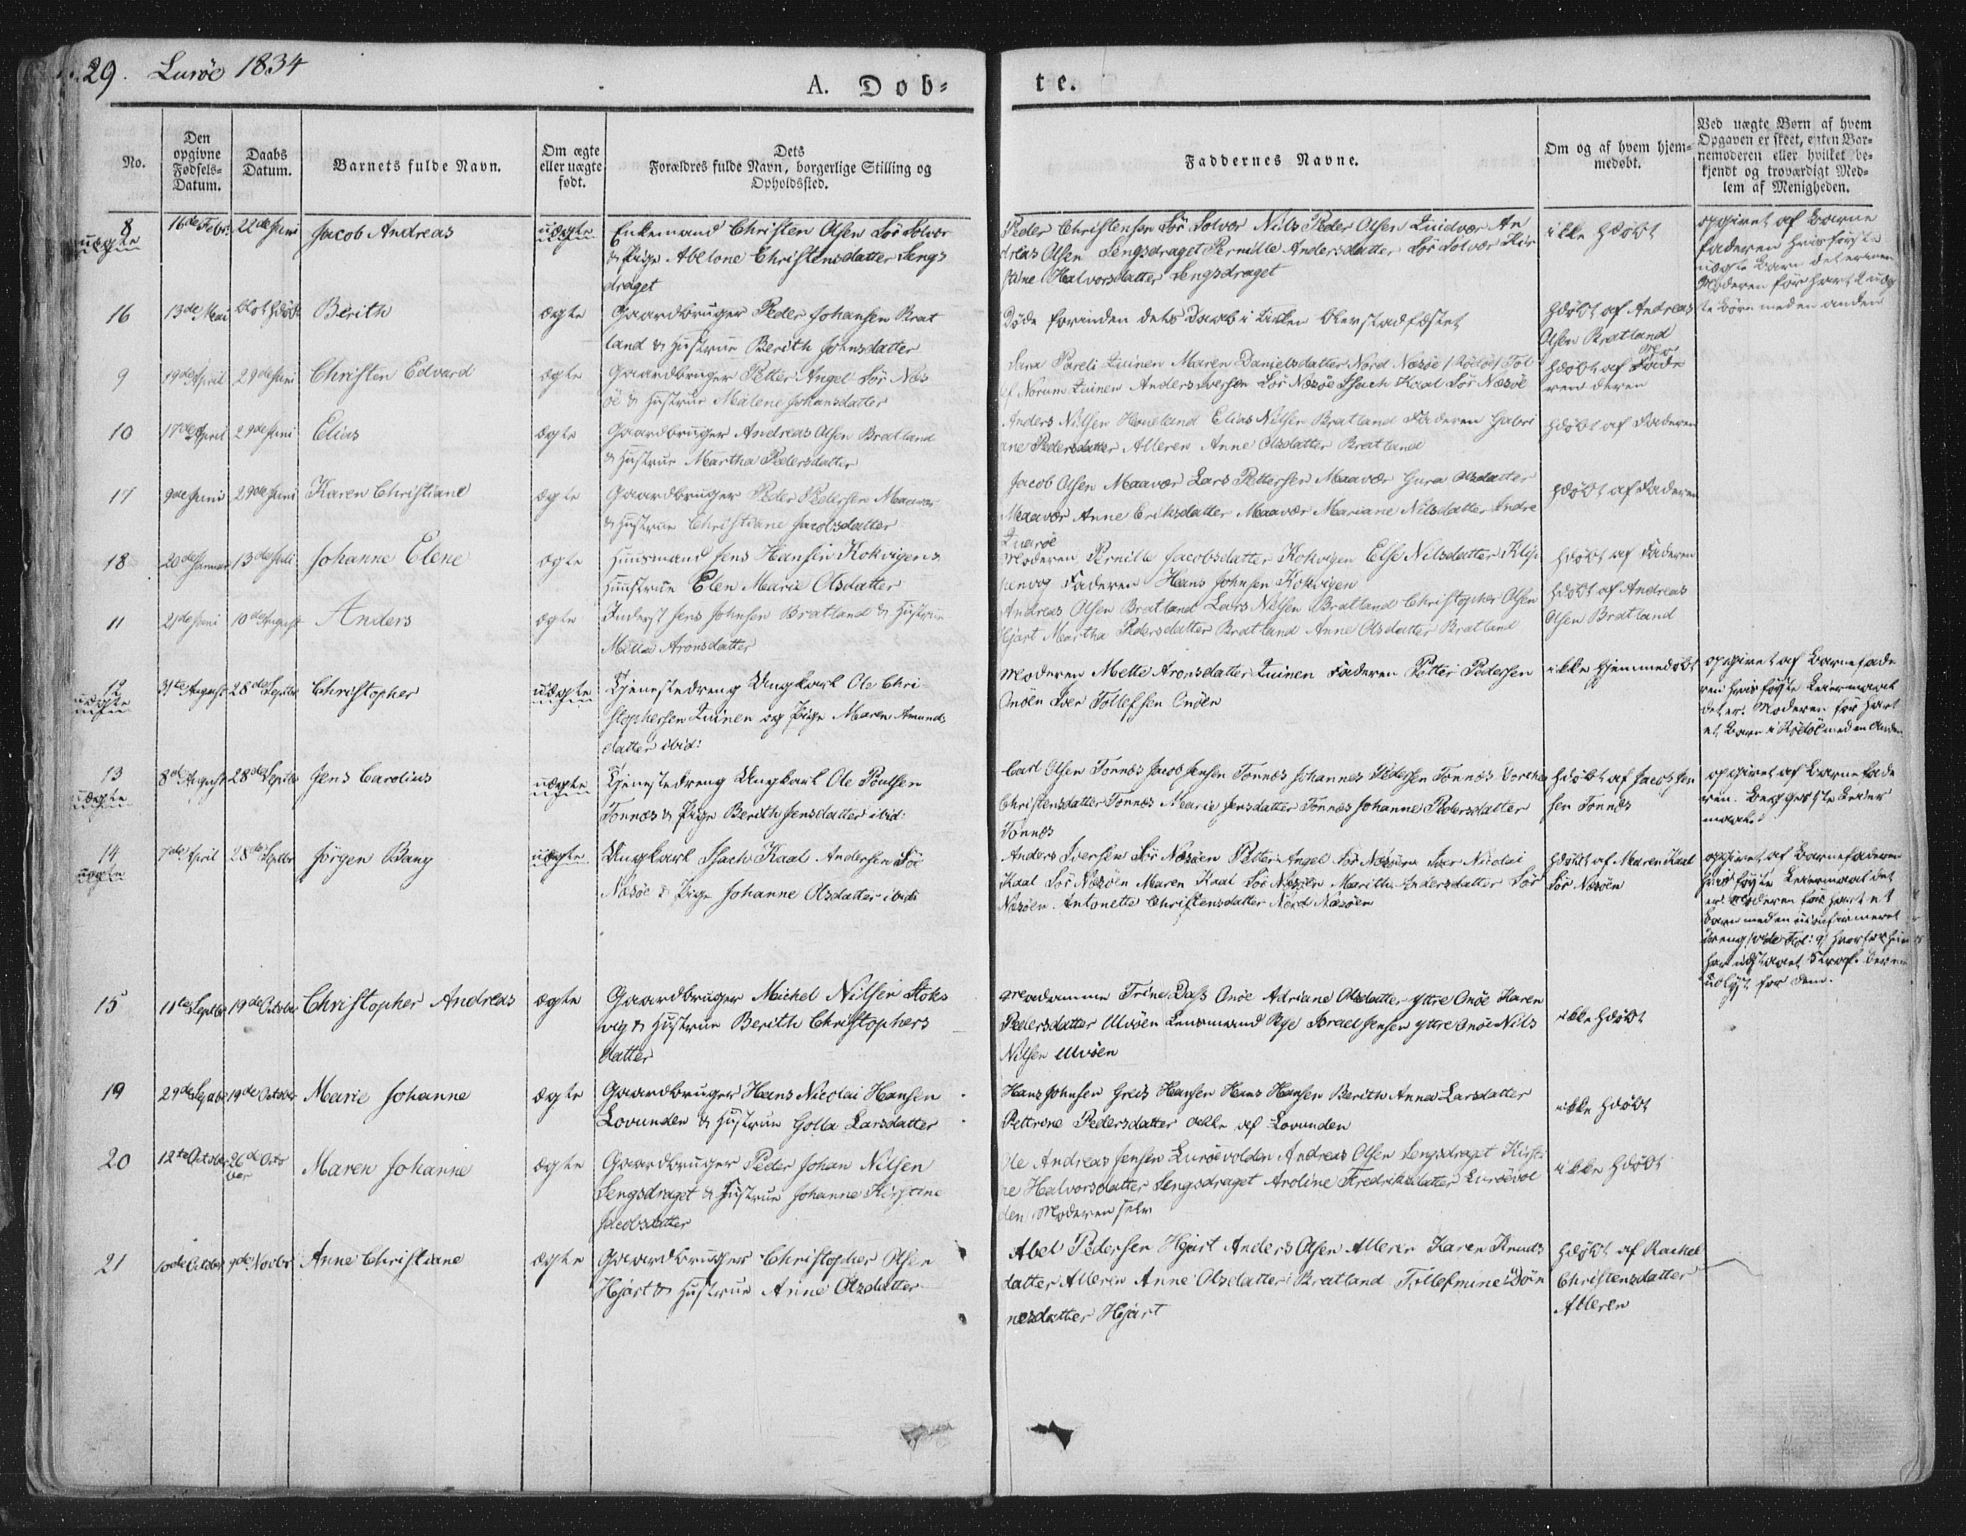 29. Lurøe 1834
A. Døb=
te.
No.
Den opgivne Fødsels-Datum.
Daabs Datum.
Barnets fulde Navn.
Om ægte eller uægte født.
Dets Forældres fulde Navn, borgerlige Stilling og Opholdssted.
Faddernes Navne.
Om og af hvem hjemmedøbt.
Ved uægte Børn af hvem Opgaven er skeet, enten Barnemoderen eller hvilket bekjendt og troværdigt Medlem af Menigheden.
8 uægte
16de Febr. 22de Juni Jacob Andreas uægte
Enkemand Christen Olsen Sør Solvær
& Pige Abelone Christensdatter Lengs
draget
Peder Christensen Sør Solvær Nils Peder Olsen Quidvær An
dreas Olsen Lengsdraget Pernille Andersdatter Sør Solvær Kir
stine Halvorsdatter Lengsdraget
ikke Hdøbt
opgivet af Barne
faderen hvis første
uægte Barn det er men
Moderen før havt 2 uæg
te børn med en anden
16 13de Mai blot Hdøbt Berith ægte
Gaardbruger Peder Johansen Brat
land & Hustrue Berith Johnsdatter
Døde forinden dets Daab i Kirken blev stadfæstet
Hdøbt af Andreas
Olsen Bratland
9 19de April 29de Juni Christen Edvard ægte
Gaardbruger Petter Angel Sør Næs
øe & Hustrue Malene Johansdatter
Sara Pareli Quinen Maren Danielsdatter Nord Næsøe (Rødøe) Tol
ef Norum Quinen Anders Iversen Sør Næsøe Isach Kaal Sør Næsøe
Hdøbt af
10 17de April 29de Juni Elias ægte
Gaardbruger Andreas Olsen Bratland
& Hustrue Martha Pedersdatter
Anders Nilsen Haneland Elias Nilsen Bratland Faderen Gabri
ane Pedersdatter Alleren Anne Olsdatter Bratland
Hdøbt af Faderen
17 9de Juni 29de Juni Karen Christiane ægte
Gaardbruger Peder Pedersen Maavær
& Hustrue Christiane Jacobsdatter
Jacob Olsen Maavær Lars Pettersen Maavær Gura Olsdatter
Maavær Anne Eriksdatter Maavær Mariane Nilsdatter Indre
Quarøe
Hdøbt af Faderen
18 20de Januar 13de Juli Johanne Elene ægte
Huusmand Jens Hansen Kokvigen &
Huustrue Elen Marie Olsdatter
Moderen Pernille Jacobsdatter Kokvigen Else Nilsdatter
og Faderen Hans Johnsen Kokvigen
Hdøbt af Faderen
11 21de Juni 10de August Anders ægte
Inderst Jens Johnsen Bratland & Hustrue
Mette Aronsdatter
Andreas Olsen Bratland Lars Nilsen Bratland Christopher Olsen
Hjart Martha Pedersdatter Bratland Anne Olsdatter Bratland
Hdøbt af Andreas
Olsen Bratland
12 uægte
31te August 28de Septbr Christopher uægte
Tjenestedreng Ungkarl Ole Chri
stophersen Quinen og Pige Maren Amunds
datter ibid:
Moderen Mette Aronsdatter Quinen Faderen Petter Pedersen
Onøen Iver Tollefsen Onøen
ikke Hjemmedøbt
opgivet af Barnefade
ren hvis første Leiermaal
det er. Moderen før havt
et Barn i Rødøe med en Anden
13 uægte
8de August 28de Septbr Jens Carolius uægte
Tjenestedreng Ungkarl Ole Poulsen
Tonnes & Pige Berith Jensdatter ibid:
Carl Olsen Tonnes Jacob Jensen Tonnes Johannes Pedersen Tonnes Dorthea
Christensdatter Tonnes Marie Jensdatter Tonnes Johanne Pedersdatter
Tonnes
Hdøbt af Jacob Jen
sen Tonnes
opgivet af Barnefade
ren. Begges 1ste Leier
maal.
14 uægte
7de April 28de Septbr Jørgen Bang uægte
Ungkarl Isach Kaal Andersen Sør
Næsøe & Pige Johanne Olsdatter ibid:
Anders Iversen Sør Næsøen Petter Angel Sør Næsøen Iver Nicolai
Kaal Sør Næsøen Maren Kaal Sør Næsøen Maritha Andersdatter Sør
Næsøen Antonette Christensdatter Nord Næsøen
Hdøbt af Maren Kaal
Sør Næsøen
opgivet af Barnefaderen
hvis første Leiermaal det
er. Moderen før havt et
Barn med en uconfirmeret
dreng (vide Fol: 9) hvorfor hun
har udstaaet Straf.
15 11te Septbr 19de Octobr Christopher Andreas ægte
Gaardbruger Michel Nilsen Stoks
vig & Hustrue Berith Christophers
datter
Madamme Trine Dass Onøe Adriane Olsdatter yttre Onøe Karen
Pedersdatter Ulvøen Lensmand Bye Israel Jensen yttre Onøe Nils
Nilsen Ulvøen
ikke Hdøbt
19 29de Septbr 19de Octobr Marie Johanne ægte
Gaardbruger Hans Nicolai Hansen
Lovunden & Hustrue Golla Larsdatter
Hans Johnsen Greis Hansen Hans Hansen Berith Anna Larsdatter
Pettrine Pedersdatter alle af Lovunden
ikke Hdøbt
20 12te October 26de Octo
ber Maren Johanne ægte
Gaardbruger Peder Johan Nilsen
Lengsdraget & Hustrue Johanne Kirstine
Jacobsdatter
Ole Andreas Jensen Lurøevolden Andreas Olsen Lengsdraget Kirsti
ne Halvorsdatter Lengsdraget Aroline Fredriksdatter Lurøevol
den Moderen selv
ikke Hdøbt
21 10de October 9de Novbr Anne Christiane ægte
Gaardbruger Christopher Olsen
Hjart & Hustrue Anne Olsdatter
Abel Pedersen Hjart Anders Olsen Alleren Karen Knuds
datter Alleren Anne Olsdatter Bratland Tollefmine Døn
nesdatter Hjart
Hdøbt af Rachel
Christensdatter
Alleren